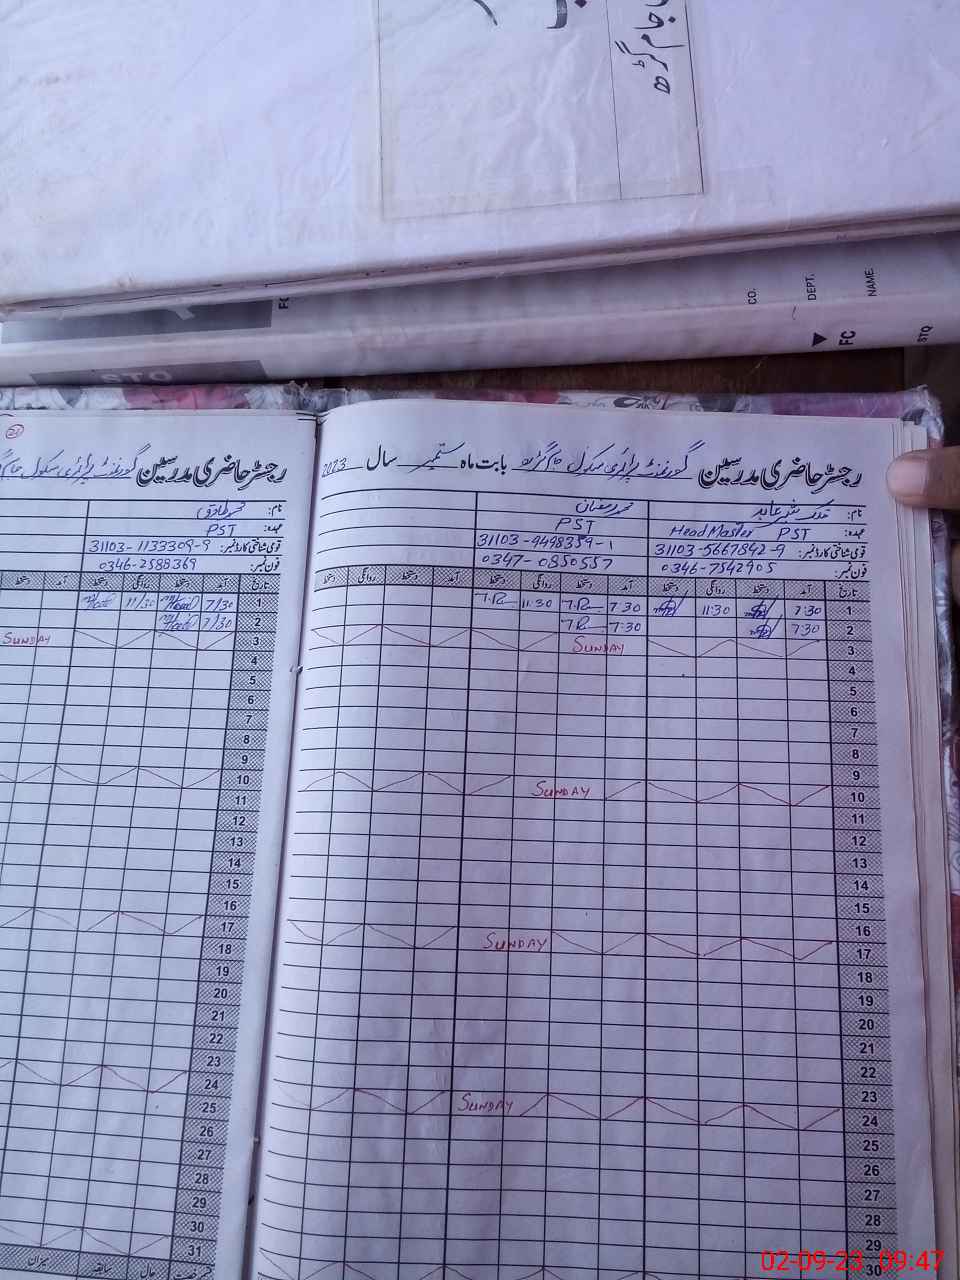 CO.
DEPT.
NAME.
FC
STQ
رجسٹر حاضری مدرسین گورنمنٹ پرائمری سکول بابت ماہ ستمبر سال 2023
نام: محمد رمضان
عہدہ: Head Master PST PST
قومی شناختی کارڈ نمبر: 31103-5667842-9 31103-9498359-1
فون نمبر: 0346-7542905 0347-0850557
تاریخ آمد دستخط روانگی دستخط آمد دستخط روانگی دستخط آمد دستخط روانگی دستخط
1 7:30 11:30 7:30 11:30
2 7:30 7:30
3 SUNDAY
4
5
6
7
8
9
10 SUNDAY
11
12
13
14
15
16
17 SUNDAY
18
19
20
21
22
23
24 SUNDAY
25
26
27
28
29
30
رجسٹر حاضری مدرسین گورنمنٹ پرائمری سکول
نام: محمد طارق
عہدہ: PST
قومی شناختی کارڈ نمبر: 31103-1133309-9
فون نمبر: 0346-2588369
تاریخ آمد دستخط روانگی دستخط آمد دستخط
1 7/30 11/30
2 7/30
3 SUNDAY
4
5
6
7
8
9
10
11
12
13
14
15
16
17
18
19
20
21
22
23
24
25
26
27
28
29
30
31
رخصت حال سابقہ میزان
02-09-23 09:47